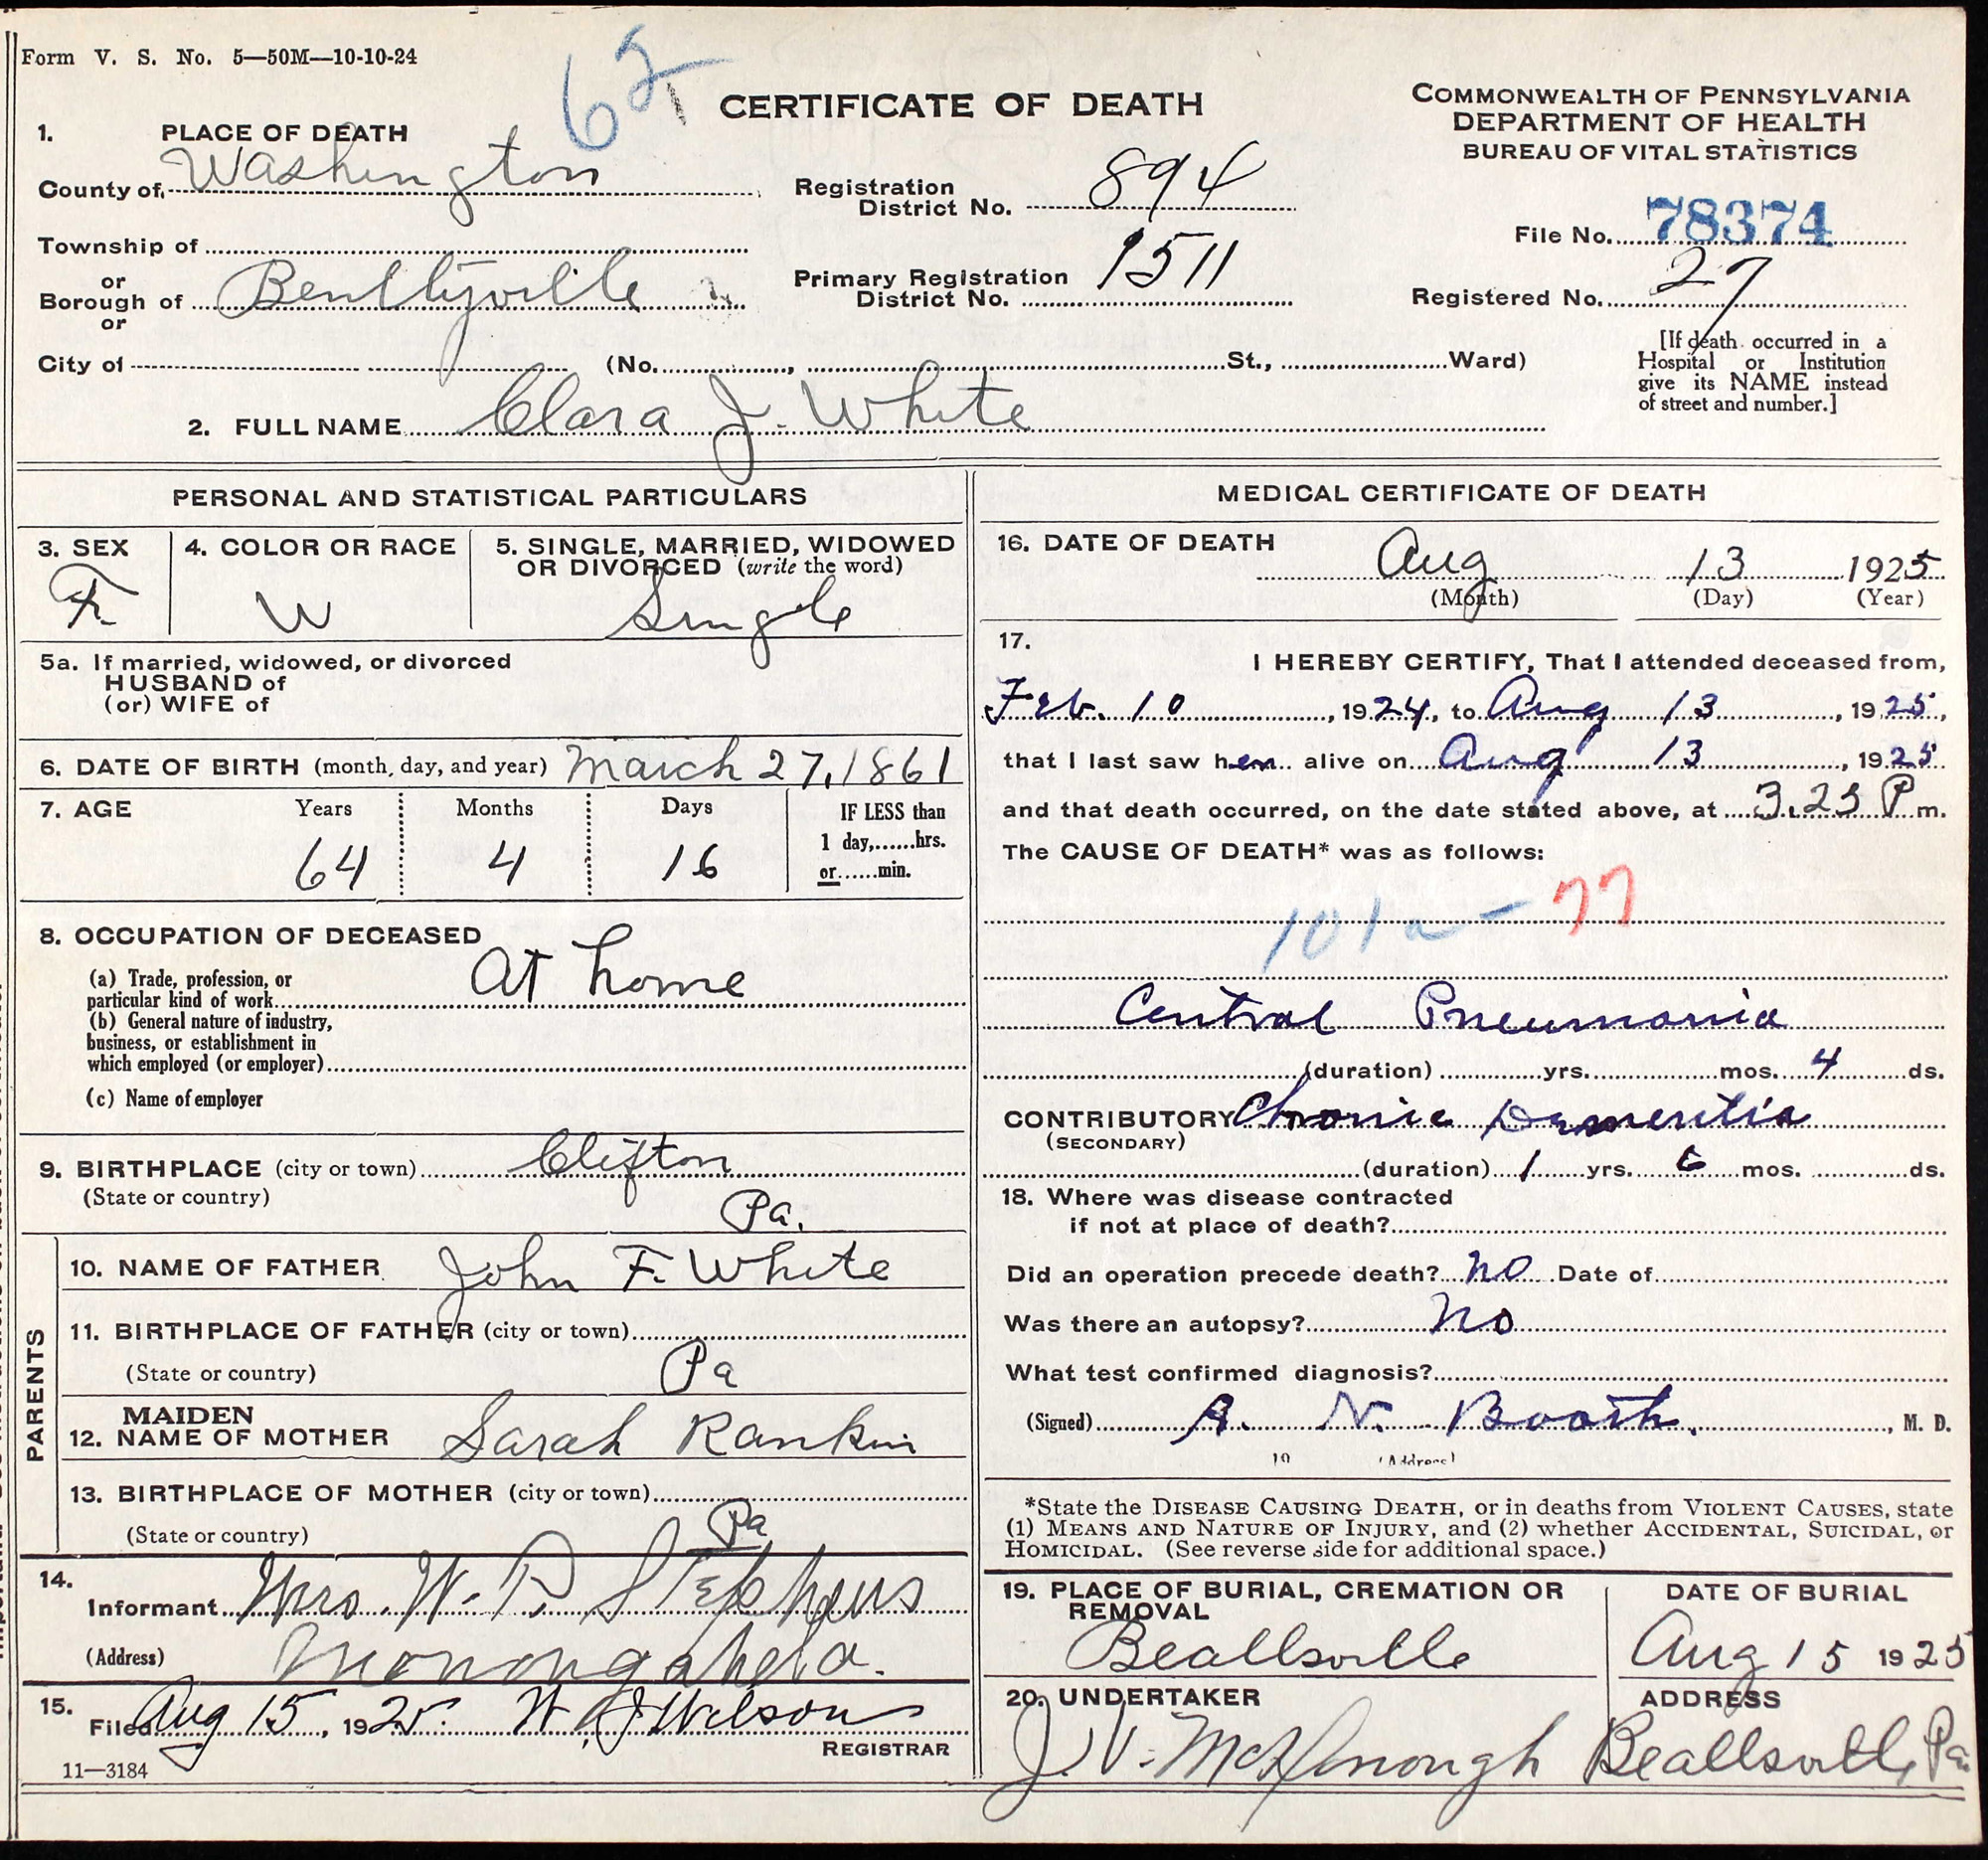 Form V. S. No. 5—50M—10-10-24
65
CERTIFICATE OF DEATH
COMMONWEALTH OF PENNSYLVANIA
DEPARTMENT OF HEALTH
BUREAU OF VITAL STATISTICS
1. PLACE OF DEATH
County of Washington
Township of
or
Borough of Bentleyville
or
City of (No. , St., Ward)
Registration District No. 894
Primary Registration District No. 1511
File No. 78374
Registered No. 27
[If death occurred in a
Hospital or Institution
give its NAME instead
of street and number.]
2. FULL NAME Clara J. White
PERSONAL AND STATISTICAL PARTICULARS
3. SEX
F.
4. COLOR OR RACE
W
5. SINGLE, MARRIED, WIDOWED
OR DIVORCED (write the word)
Single
5a. If married, widowed, or divorced
HUSBAND of
(or) WIFE of
6. DATE OF BIRTH (month, day, and year) March 27, 1861
7. AGE Years Months Days
64 4 16
IF LESS than
1 day,......hrs.
or......min.
8. OCCUPATION OF DECEASED
(a) Trade, profession, or
particular kind of work At home
(b) General nature of industry,
business, or establishment in
which employed (or employer)
(c) Name of employer
9. BIRTHPLACE (city or town) Clifton
(State or country) Pa.
PARENTS
10. NAME OF FATHER John F. White
11. BIRTHPLACE OF FATHER (city or town)
(State or country) Pa
12. MAIDEN NAME OF MOTHER Sarah Rankin
13. BIRTHPLACE OF MOTHER (city or town)
(State or country) Pa
14.
Informant Mrs. W. P. Stephens
(Address) Monongahela.
15.
Filed Aug 15, 1925. W. J. Wilson
REGISTRAR
11—3184
MEDICAL CERTIFICATE OF DEATH
16. DATE OF DEATH
Aug 13 1925
(Month) (Day) (Year)
17.
I HEREBY CERTIFY, That I attended deceased from,
Feb. 10, 1924, to Aug 13, 1925,
that I last saw her alive on Aug 13, 1925
and that death occurred, on the date stated above, at 3.25 P m.
The CAUSE OF DEATH* was as follows:
101a - 77
Central Pneumonia
(duration) yrs. mos. 4 ds.
CONTRIBUTORY Chronic Dementia
(SECONDARY)
(duration) 1 yrs. 6 mos. ds.
18. Where was disease contracted
if not at place of death?
Did an operation precede death? no Date of
Was there an autopsy? no
What test confirmed diagnosis?
(Signed) A. N. Booth, M. D.
19 (Address)
*State the DISEASE CAUSING DEATH, or in deaths from VIOLENT CAUSES, state
(1) MEANS AND NATURE OF INJURY, and (2) whether ACCIDENTAL, SUICIDAL, or
HOMICIDAL. (See reverse side for additional space.)
19. PLACE OF BURIAL, CREMATION OR
REMOVAL
Beallsville
DATE OF BURIAL
Aug 15 1925
20. UNDERTAKER
J. V. McDonough
ADDRESS
Beallsville, Pa.